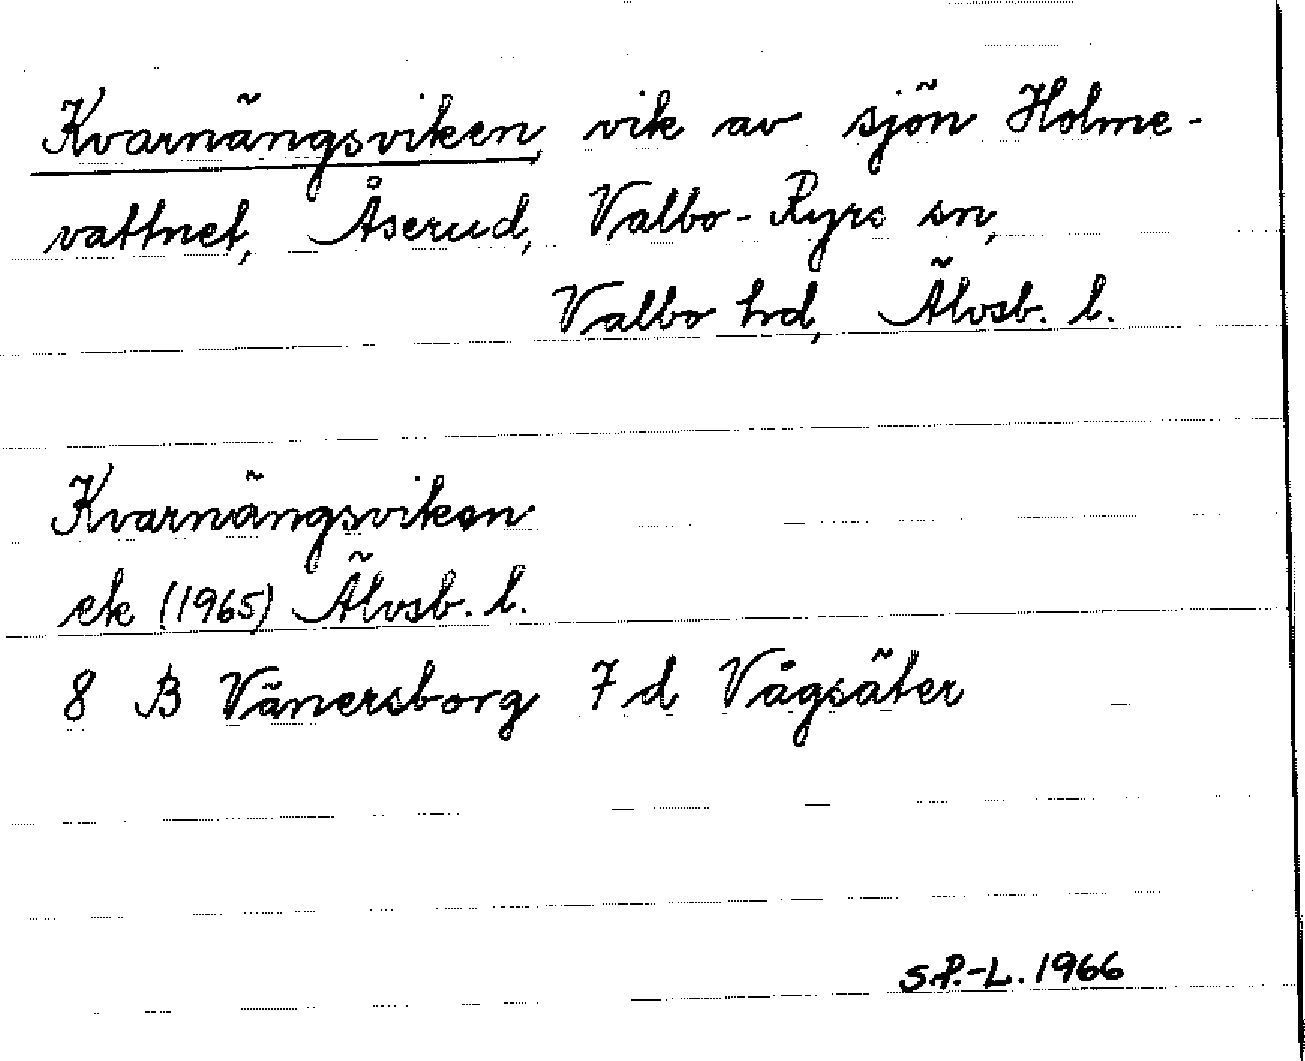 Kvarnängsviken, vik av sjön Holme-
vattnet, Åserud, Valbo-Ryrs sn,
Valbo hrd, Älvsb. l.
Kvarnängsviken
ek (1965) Älvsb. l.
8 B Vänersborg 7 d Vågsäter
S.P.-L. 1966